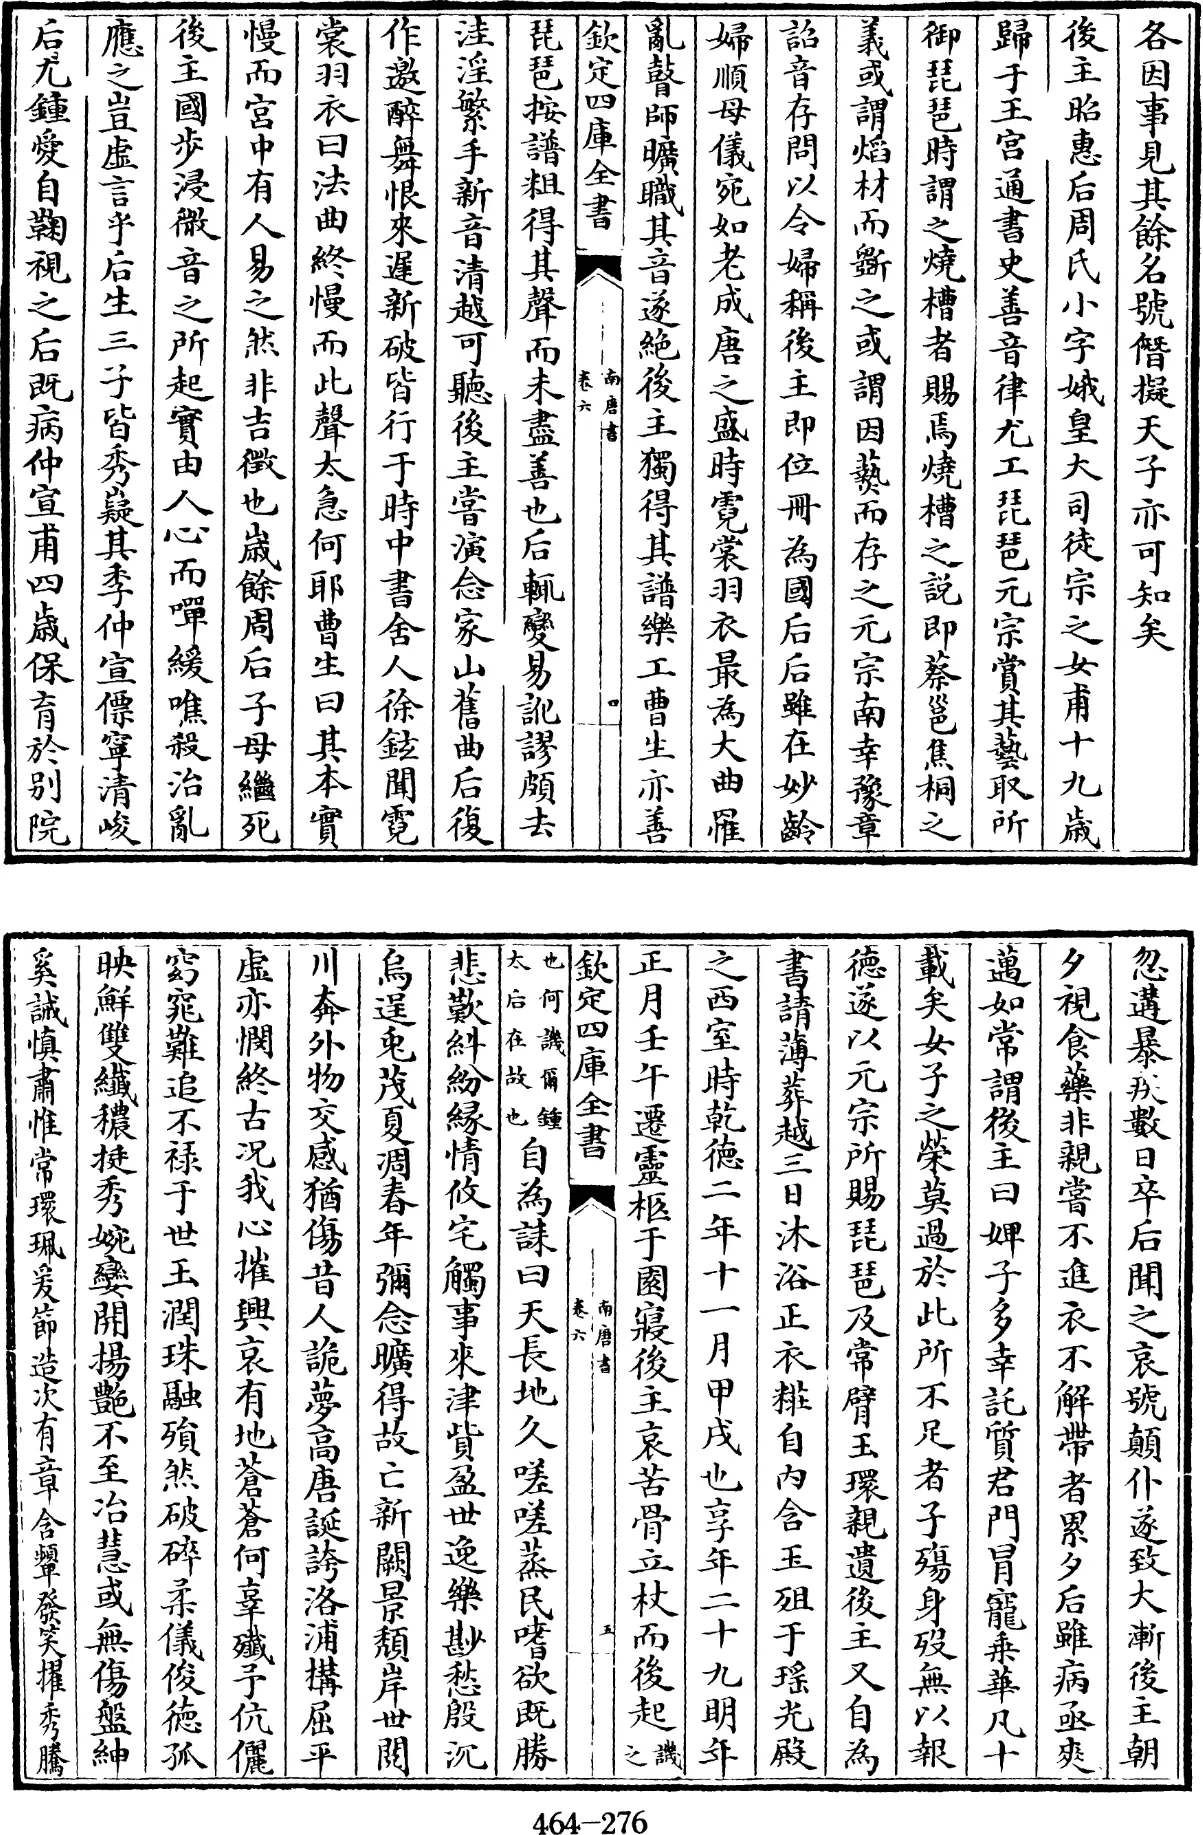 各因事見其餘名號僭擬天子亦可知矣
後主昭惠后周氏小字娥皇大司徒宗之女甫十九歲
歸于王宮通書史善音律尤工琵琶元宗賞其藝取所
御琵琶時謂之燒槽者賜焉燒槽之説即蔡邕焦桐之
義或謂焰材而斵之或謂因爇而存之元宗南幸豫章
詔音存問以令婦稱後主即位冊為國后后雖在妙齡
婦順母儀宛如老成唐之盛時霓裳羽衣最為大曲罹
亂瞽師曠職其音遂絶後主獨得其譜樂工曹生亦善
欽定四庫全書
南唐書
卷六
四
琵琶按譜粗得其聲而未盡善也后輒變易訛謬頗去
洼淫繁手新音清越可聽後主嘗演念家山舊曲后復
作邀醉舞恨來遲新破皆行于時中書舍人徐鉉聞霓
裳羽衣曰法曲終慢而此聲太急何耶曹生曰其本實
慢而宮中有人易之然非吉徵也歲餘周后子母繼死
後主國步浸微音之所起實由人心而嘽緩噍殺治亂
應之豈虛言乎后生三子皆秀嶷其季仲宣僄寧清峻
后尤鍾愛自鞠視之后既病仲宣甫四歲保育於别院
忽遘暴疾數日卒后聞之哀號顛仆遂致大漸後主朝
夕視食藥非親嘗不進衣不解帶者累夕后雖病亟爽
邁如常謂後主曰婢子多幸託質君門冒寵乘華凡十
載矣女子之榮莫過於此所不足者子殤身歿無以報
德遂以元宗所賜琵琶及常臂玉環親遺後主又自為
書請薄葬越三日沐浴正衣糚自内含玉殂于瑤光殿
之西室時乾德二年十一月甲戌也享年二十九明年
正月壬午遷靈柩于園寢後主哀苦骨立杖而後起譏之
欽定四庫全書
南唐書
卷六
五
也何譏爾鍾
太后在故也
自為誄曰天長地久嗟嗟蒸民嗜欲既勝
悲歎糾紛縁情攸宅觸事來津貲盈世逸樂尠愁殷沉
烏逞兎茂夏凋春年彌念曠得故亡新闕景頹岸世閲
川奔外物交感猶傷昔人詭夢高唐誕誇洛浦構屈平
虛亦憫終古况我心摧興哀有地蒼蒼何辜殲予伉儷
窈窕難追不禄于世玉潤珠融殞然破碎柔儀俊德孤
映鮮雙纖穠挺秀婉孌開揚艶不至冶慧或無傷盤紳
奚誡慎肅惟常環珮爰節造次有章含顰發笑擢秀騰
464-276